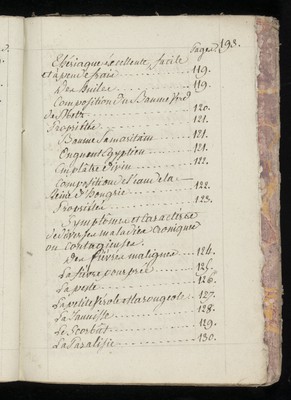 Pages 193.
Thériaque excellente, facile
et à peu de frais ... 119.
Des huiles ... 119.
Composition du Baume Verd
de Metz ... 120.
Propriétés ... 121.
Baume Samaritain ... 121.
Onguent Egyptien ... 121.
Emplâtre divin ... 122.
Composition d'eau de la
Reine d'Hongrie ... 122.
Propriétés ... 123.
Symptomes et Caractères
de diverses maladies Croniques
ou contagieuses.
des fièvres malignes ... 124.
La fièvre pourprée ... 125.
La peste ... 126.
La petite Vérole et la rougeole. 127.
La Jaunisse ... 128.
Le Scorbut ... 129.
La Paralisie ... 130.